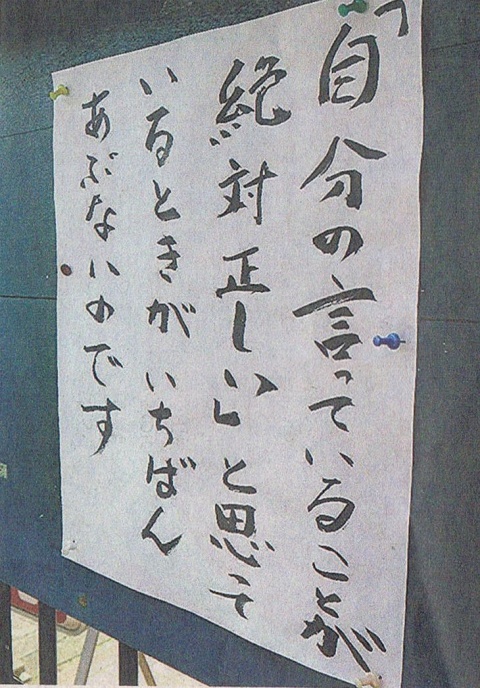 「自分の言っていることが
絶対正しい」と思って
いるときが いちばん
あぶないのです